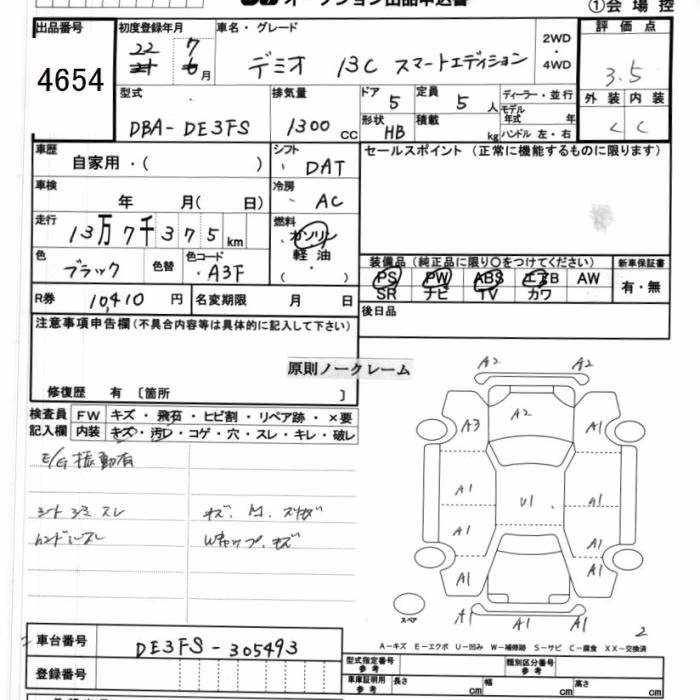 オークション出品申込書
①会場控
出品番号
4654
初度登録年月
22 7
21 6 月
車名・グレード
デミオ 13C スマートエディション
2WD
・
4WD
評価点
3.5
外装 内装
C C
型式
DBA-DE3FS
排気量
1300 CC
ドア 5
形状 HB
定員 5 人
積載 kg
ディーラー・並行
モデル年式 年
ハンドル 左・右
車歴
自家用・( )
シフト
DAT
セールスポイント (正常に機能するものに限ります)
車検
年 月( 日)
冷房
AC
走行
13万7千375km
燃料
ガソリン
軽油
( ・ )
色
ブラック
色替
色コード
A3F
装備品 (純正品に限り○をつけてください)
PS PW ABS エアB AW
SR ナビ TV カワ
新車保証書
有・無
R券 10,410 円
名変期限 月 日
後日品
注意事項申告欄(不具合内容等は具体的に記入して下さい)
原則ノークレーム
修復歴 有 〔箇所 〕
検査員
記入欄
FW キズ・飛石・ヒビ割・リペア跡・×要
内装 キズ・汚レ・コゲ・穴・スレ・キレ・破レ
E/G 振動有
シートシミ スレ
ハンドルスレ
A2 A2
A3 A2 A1
A1 U1 A1
A1 A1
A1 A1
A1 A1 A1
スペア
2
車台番号
DE3FS-305493
登録番号
A-キズ E-エクボ U-凹み W-補修跡 S-サビ C-腐食 XX-交換済
型式指定番号
参考
類別区分番号
参考
車庫証明用
参考
長さ cm 幅 cm 高さ cm